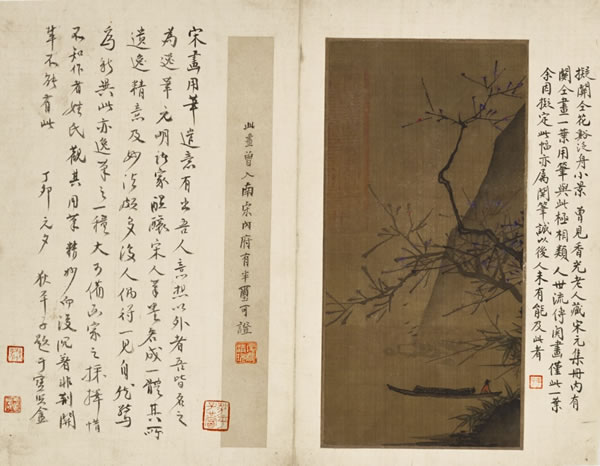 擬關仝花谿泛舟小景 曾見香光老人藏宋元集冊內有
關仝畫一葉用筆與此極相類 人世流傳關畫僅此一葉
余因擬定此幅亦屬關筆誠以後人未有能及此者
此畫曾入南宋內府有半璽可證
宋畫用筆遣意有出吾人意想以外者吾皆名之
為逸筆元明諸家醞釀宋人筆墨各成一體其所
遺逸精意及妙法頗多後人偶得一見自然驚
為新異此亦逸筆之一種大可備畫家之採擇惜
不知作者姓氏觀其用筆精妙而復沉著非荊關
輩不能有此 丁卯元夕 狄平子題于寶盦